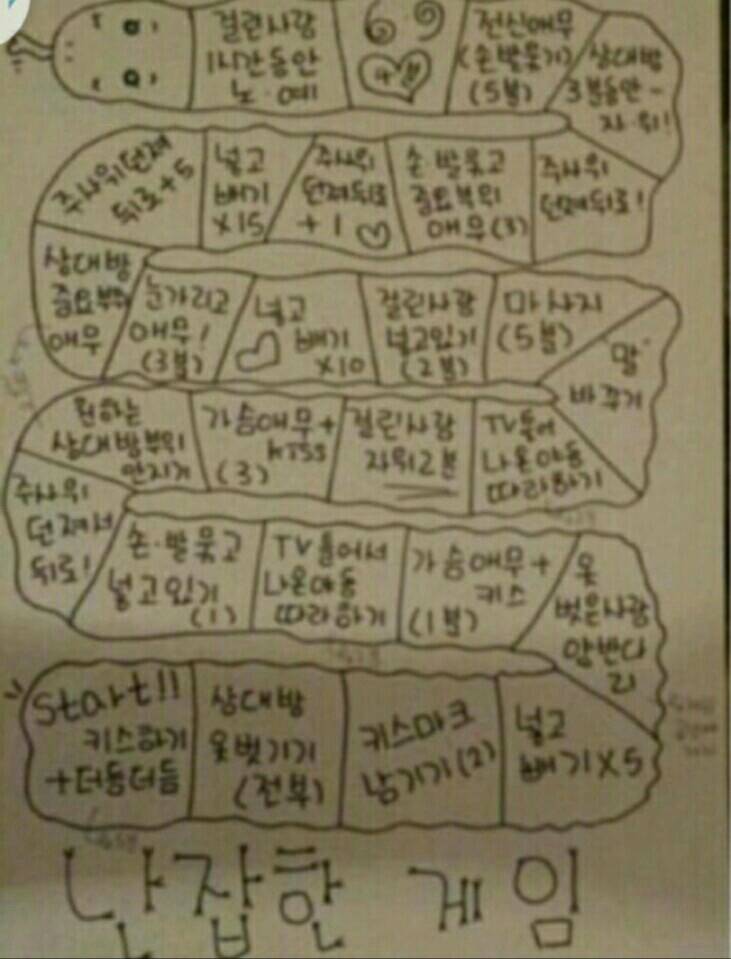 걸린사람
1시간동안
노·예
69
전신애무
(손발묶기)
(5분)
상대방
3분동안-
자·위!
주사위던져
뒤로+5
넣고
빼기
X15
주사위
던져뒤로
+1♡
손·발묶고
중요부위
애무(3)
주사위
던져뒤로!
상대방
중요부위
애무
눈가리고
애무!
(3분)
넣고
♡ 빼기
X10
걸린사람
넣고있기
(2분)
마사지
(5분)
"말"
바꾸기
원하는
상대방부위
만지기
가슴애무+
kiss
(3)
걸린사람
자위2분
TV틀어
나온야동
따라하기
주사위
던져서
뒤로!
손·발묶고
넣고있기
(1)
TV틀어서
나온야동
따라하기
가슴애무+
키스
(1분)
옷
벗은사람
start!!
키스하기
+더듬더듬
상대방
옷벗기기
(전부)
키스마크
남기기(2)
넣고
빼기X5
난잡한 게임